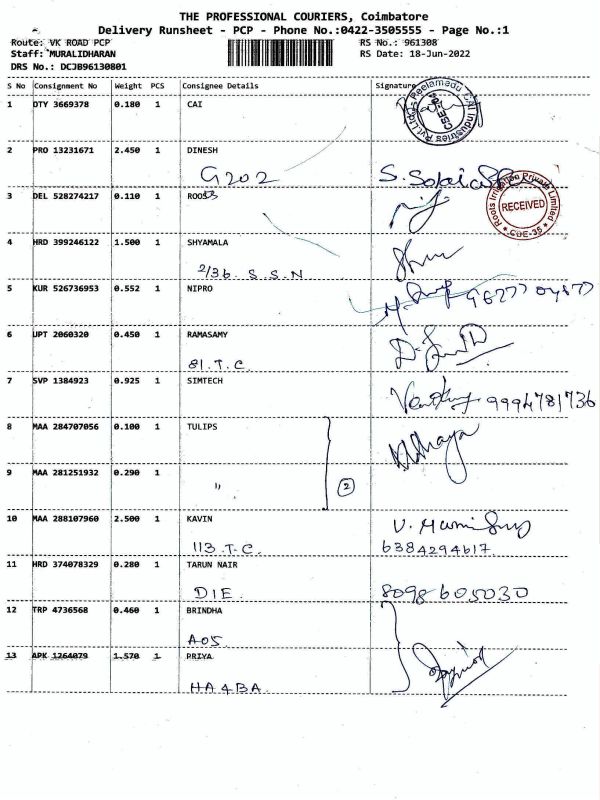 THE PROFESSIONAL COURIERS, Coimbatore
Delivery Runsheet - PCP - Phone No.:0422-3505555 - Page No.:1
Route: VK ROAD PCP RS No.: 961308
Staff: MURALIDHARAN RS Date: 18-Jun-2022
DRS No.: DCJB96130801
S No Consignment No Weight PCS Consignee Details Signature
1 DTY 3669378 0.180 1 CAI
Peelamedu CAI Industries Pvt.Ltd
2 PRO 13231671 2.450 1 DINESH
G202
3 DEL 528274217 0.110 1 ROOTS
Roots Irrigation Private Limited
RECEIVED
CBE-35
4 HRD 399246122 1.500 1 SHYAMALA
2/36. S.S.N
5 KUR 526736953 0.552 1 NIPRO
6 UPT 2060320 0.450 1 RAMASAMY
81. T.C.
7 SVP 1384923 0.925 1 SIMTECH
9994781736
8 MAA 284707056 0.100 1 TULIPS
9 MAA 281251932 0.290 1 "
2
10 MAA 288107960 2.500 1 KAVIN
113. T.C. 6384294617
11 HRD 374078329 0.280 1 TARUN NAIR
DIE. 8098605030
12 TRP 4736568 0.460 1 BRINDHA
A05
13 APK 1264079 1.570 1 PRIYA
HA4BA